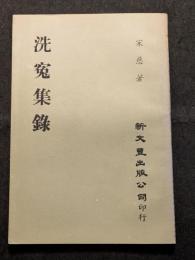 宋慈著
洗冤集錄
新文豐出版公司印行